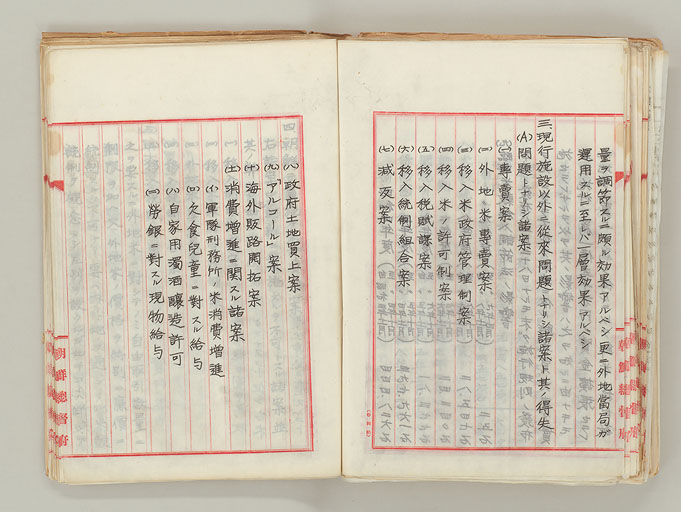 量ヲ調節スルニ頗ル効果アルベシ更ニ外地當局ガ
運用スルニ至レバ一層効果アルベシ
三、現行施設以外ニ從來問題トナリシ諸案ト其ノ得失
(A) 問題トナリシ諸案
(一) 專賣案
(二) 外地ノ米專賣案
(三) 移入米政府管理制案
(四) 移入米ノ許可制案
(五) 移入税賦課案
(六) 移入統制組合案
(七) 減反案
(八) 政府土地買上案
(九) 「アルコール」案
(十) 海外販路開拓案
(十一) 消費增進ニ関スル諸案
(イ) 軍隊刑務所ノ米消費增進
(ロ) 欠食兒童ニ對スル給与
(ハ) 自家用濁酒釀造許可
(ニ) 勞銀ニ對スル現物給与
朝鮮總督府